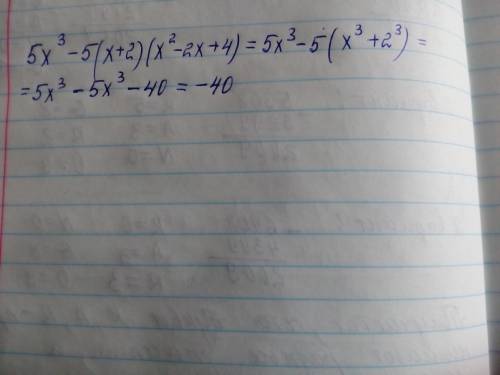 5x³ - 5(x+2)(x²-2x+4) = 5x³ - 5(x³ + 2³) =
= 5x³ - 5x³ - 40 = -40